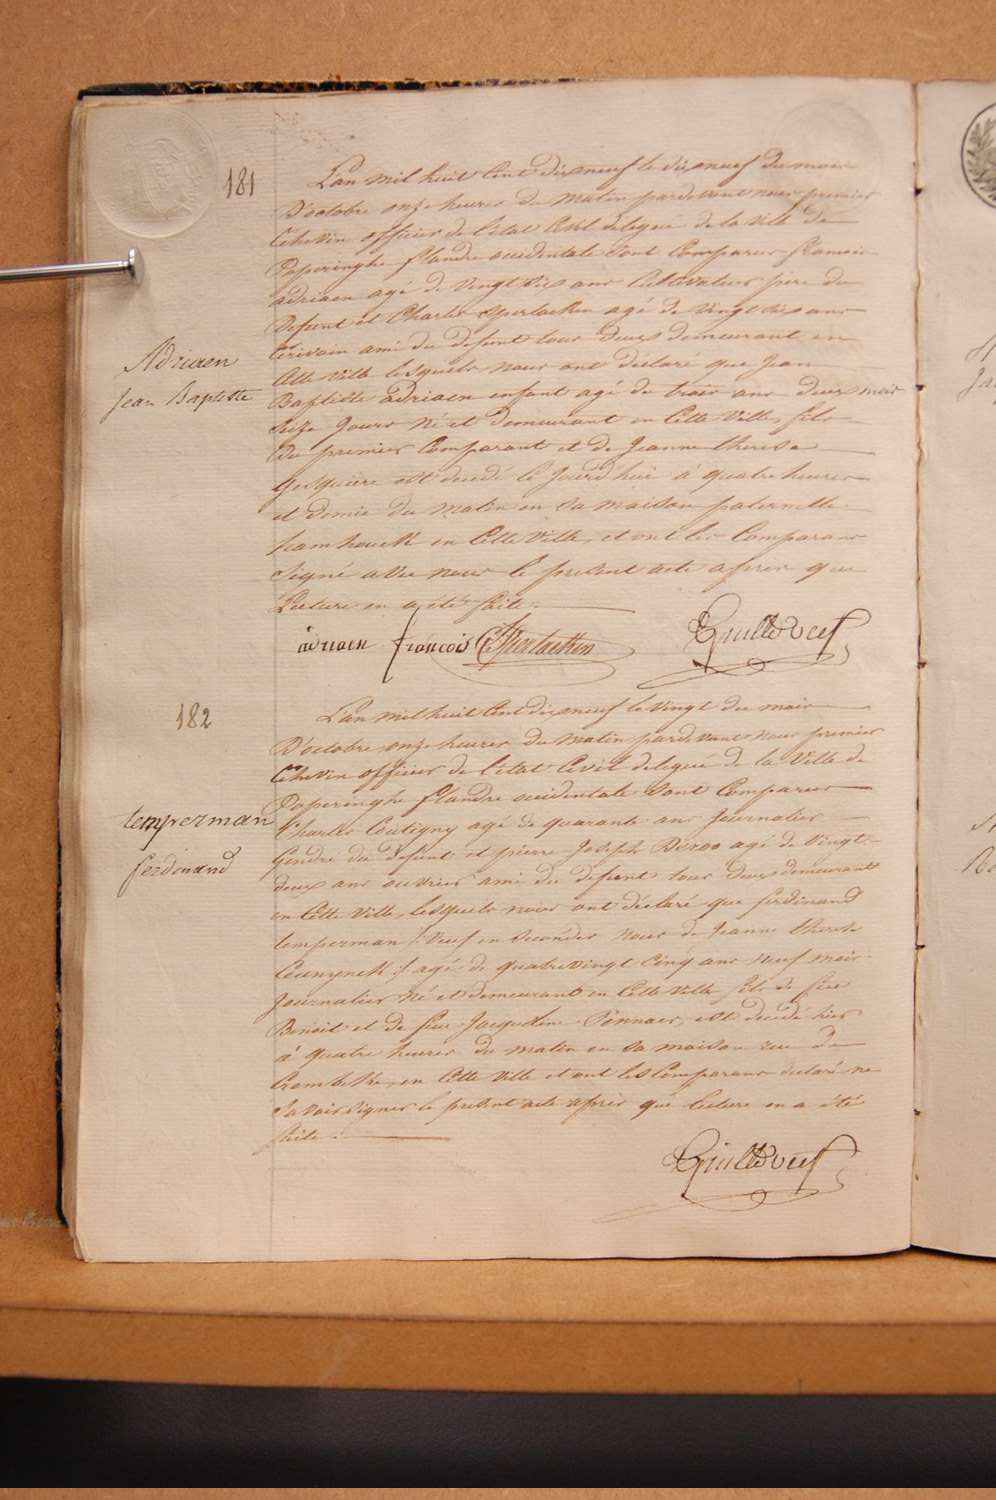 181
L'an mil huit Cent dixneuf le dixneuf du mois
D'octobre onze heures du matin pardevant nous premier
Echevin officier de l'état Civil delegué de la ville de
Poperinghe flandre occidentale sont Comparus francois
adriaen agé de vingt six ans Cultivateur père du
Defunt et Charles Sperlaeken agé de vingt six ans
Ecrivain ami du defunt tous deux demeurant en
Cette ville lesquels nous ont declaré que Jean
Adriaen
Jean Baptiste
Baptiste adriaen enfant agé de trois ans deux mois
seize Jours né et demeurant en Cette ville, fils
Du premier Comparant et de Jeanne therese
Gesquiere est decedé le Jourd'hui à quatre heures
et demie du matin en sa maison paternelle
hamhouck en Cette ville, et ont les Comparans
Signé avec nous le present acte apres que
Lecture en a été faite.
adriaen francois CSperlaeken
182
L'an mil huit Cent dixneuf le vingt du mois
D'octobre onze heures du matin pardevant nous premier
Echevin officier de l'état Civil delegué de la Ville de
Poperinghe flandre occidentale sont Comparus
Charles Coutigny agé de quarante ans Journalier
temperman
ferdinand
Gendre du defunt et pierre Joseph agé de vingt
deux ans ouvrier ami du defunt tous deux demeurant
en Cette ville, lesquels nous ont déclaré que ferdinand
temperman /: Veuf en secondes noces de Jeanne therese
:/ agé de quatrevingt cinq ans neuf mois
Journalier né et demeurant en Cette ville fils de feu
Benoit et de feue Jacqueline est decedé hier
à quatre heures du matin en sa maison rue de
en Cette ville et ont les Comparans declaré ne
Savoir signer le present acte après que lecture en a été
faite.